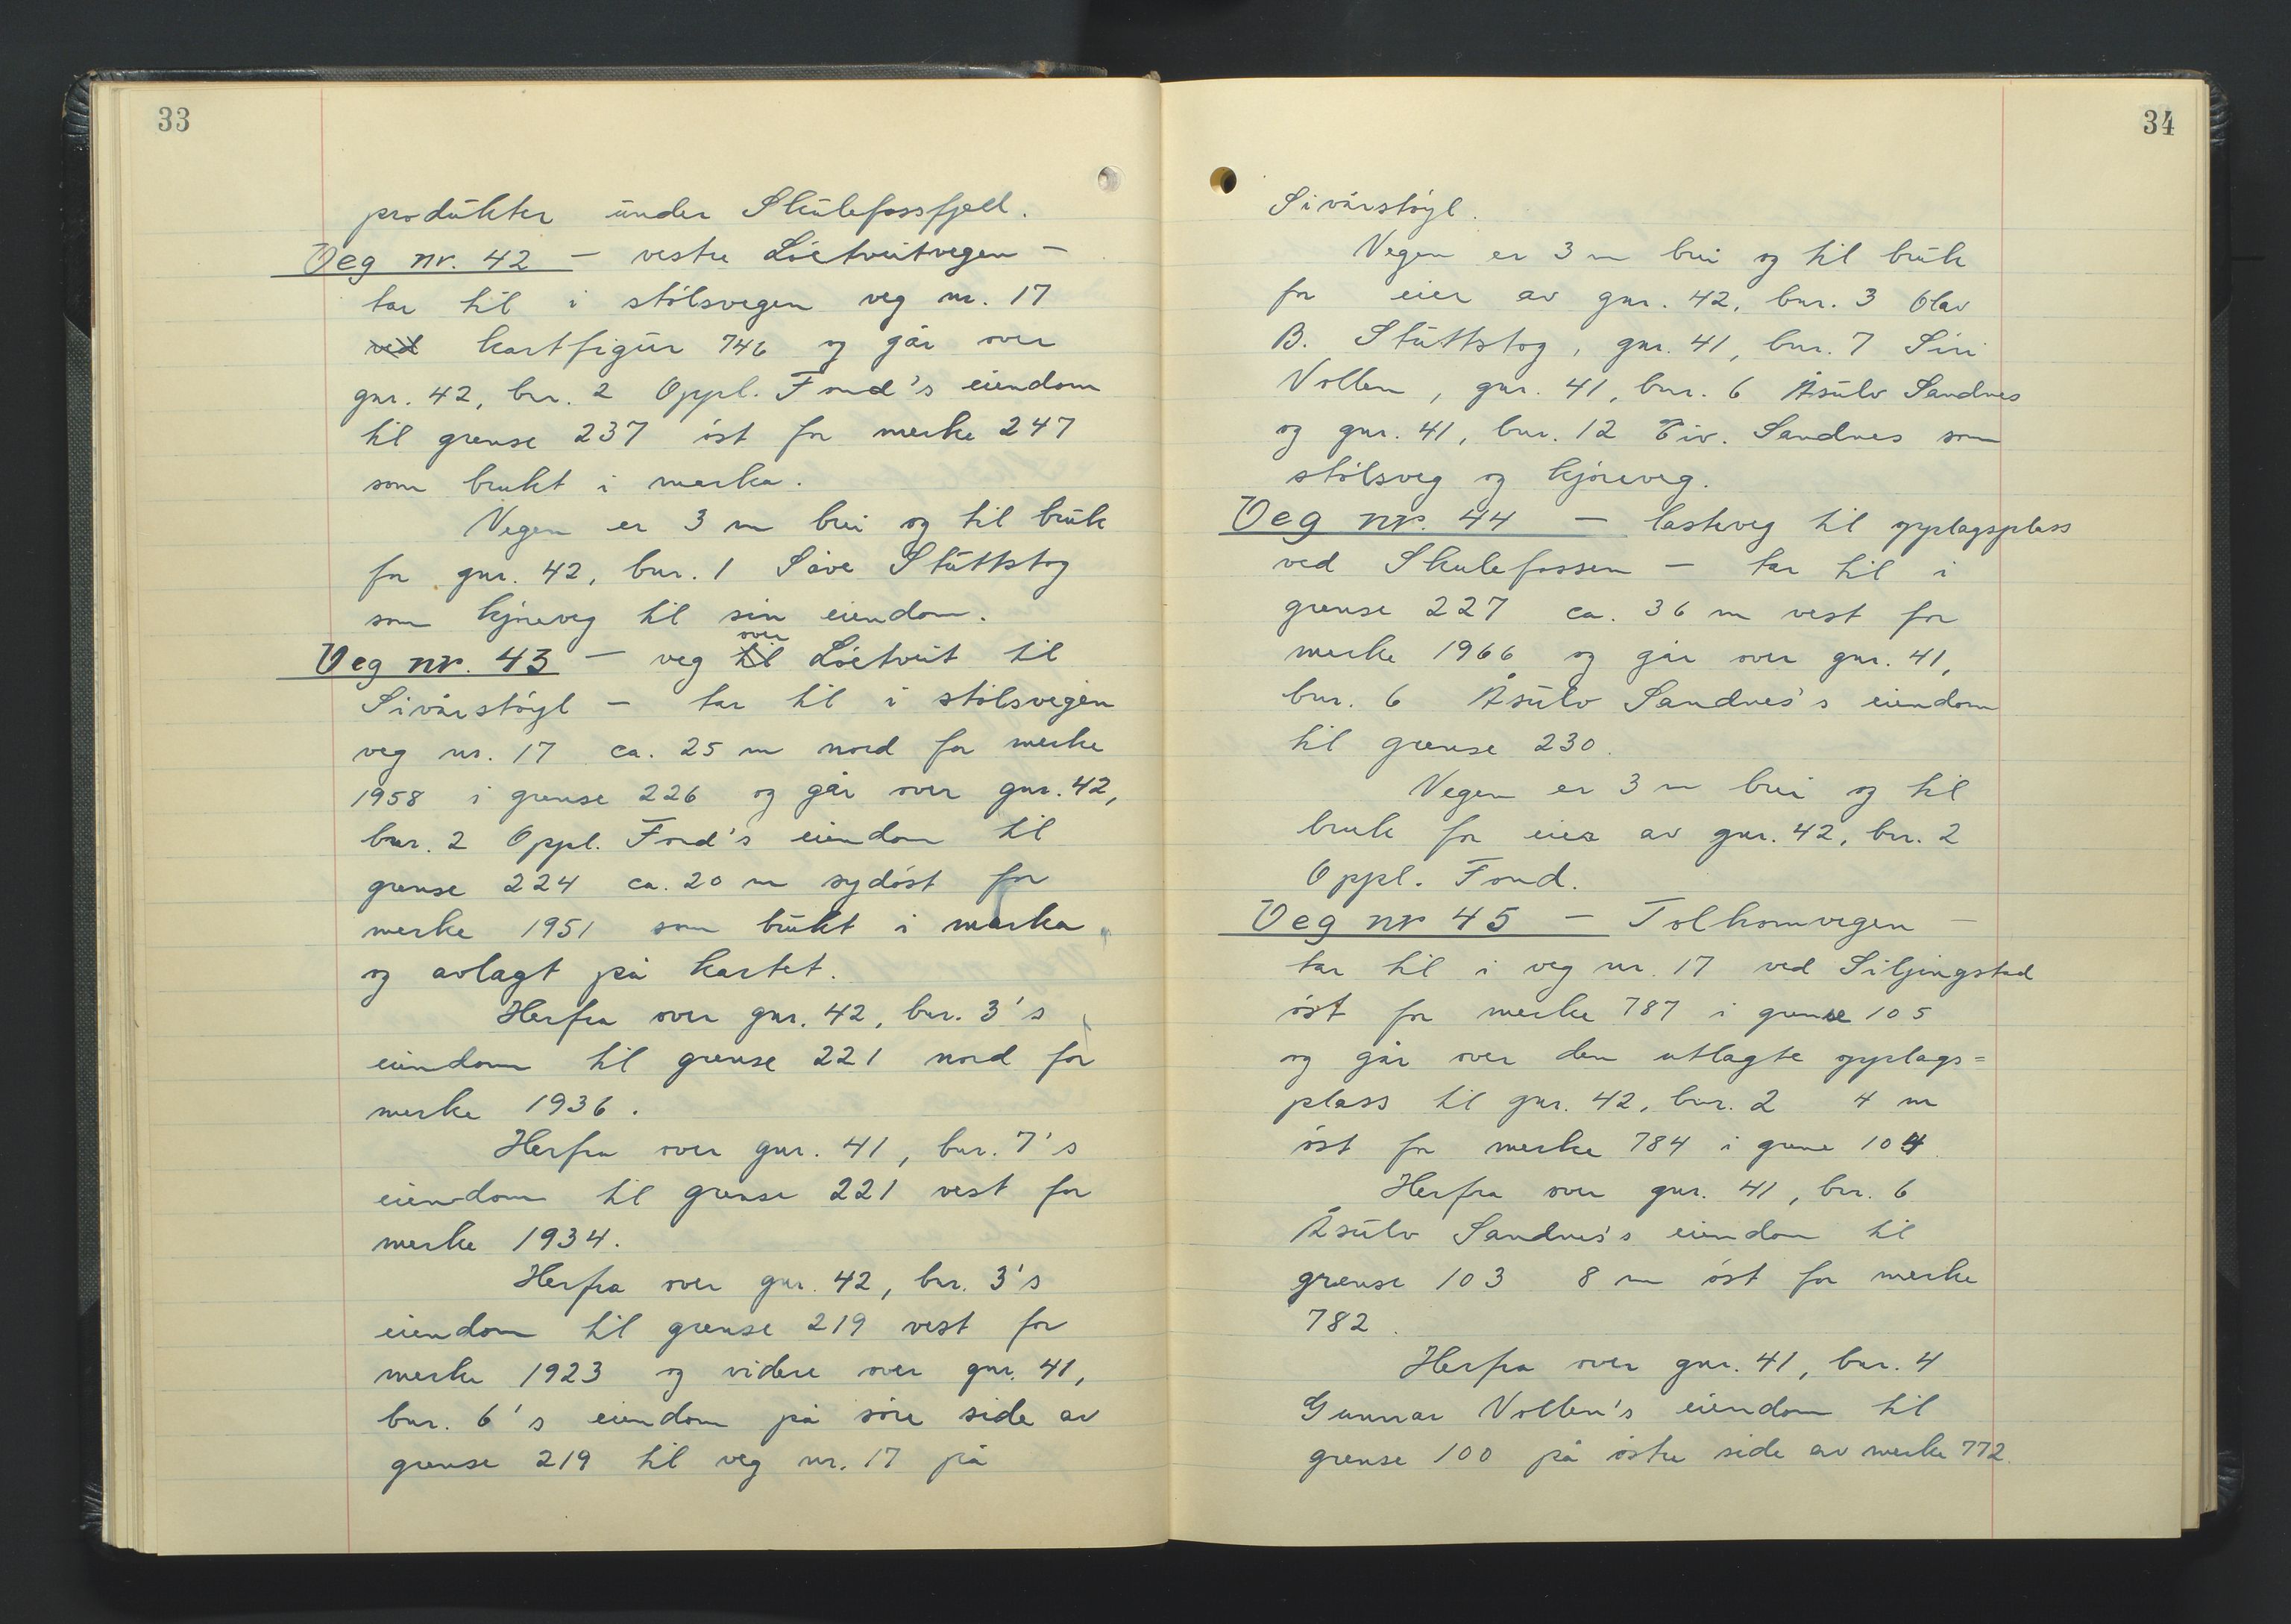 33
produkter under Skulefossfjell.
Veg nr. 42 — vestre Lóetveitvegen —
tar til i stólsvegen veg nr. 17
ved kartfigur 746 og går over
gnr. 42, bnr. 2 Oppl. Fond's eiendom
til grense 237 óst for merke 247
som brukt i marka.
Vegen er 3 m brei og til bruk
for gnr. 42, bnr. 1 Såve Stuttstog
som kjóreveg til sin eiendom.
over
Veg nr. 43 — veg til Lóetveit til
Sivårstóyl — tar til i stólsvegen
veg nr. 17 ca. 25 m nord for merke
1958 i grense 226 og går over gnr. 42,
bnr. 2 Oppl. Fond's eiendom til
grense 224 ca. 20 m sydóst for
merke 1951 som brukt i marka
og avlagt på kartet.
Herfra over gnr. 42, bnr. 3's
eiendom til grense 221 nord for
merke 1936.
Herfra over gnr. 41, bnr. 7's
eiendom til grense 221 vest for
merke 1934.
Herfra over gnr. 42, bnr. 3's
eiendom til grense 219 vest for
merke 1923 og videre over gnr. 41,
bnr. 6's eiendom på sóre side av
grense 219 til veg nr. 17 på
34
Sivårstóyl.
Vegen er 3 m brei og til bruk
for eier av gnr. 42, bnr. 3 Olav
B. Stuttstog, gnr. 41, bnr. 7 Siri
Vollen, gnr. 41, bnr. 6 Åsulv Sandnes
og gnr. 41, bnr. 12 Eiv. Sandnes som
stólsveg og kjóreveg.
Veg nr. 44 — lasteveg til opplagsplass
ved Skulefossen — tar til i
grense 227 ca. 36 m vest for
merke 1966 og går over gnr. 41,
bnr. 6 Åsulv Sandnes's eiendom
til grense 230.
Vegen er 3 m brei og til
bruk for eier av gnr. 42, bnr. 2
Oppl. Fond.
Veg nr 45 — Tolhomvegen —
tar til i veg nr. 17 ved Siljingstad
óst for merke 787 i grense 105
og går over den utlagte opplags=
plass til gnr. 42, bnr. 2 4 m
óst for merke 784 i grense 104.
Herfra over gnr. 41, bnr. 6
Åsulv Sandnes's eiendom til
grense 103 8 m óst for merke
782.
Herfra over gnr. 41, bnr. 4
Gunnar Vollen's eiendom til
grense 100 på óstre side av merke 772.